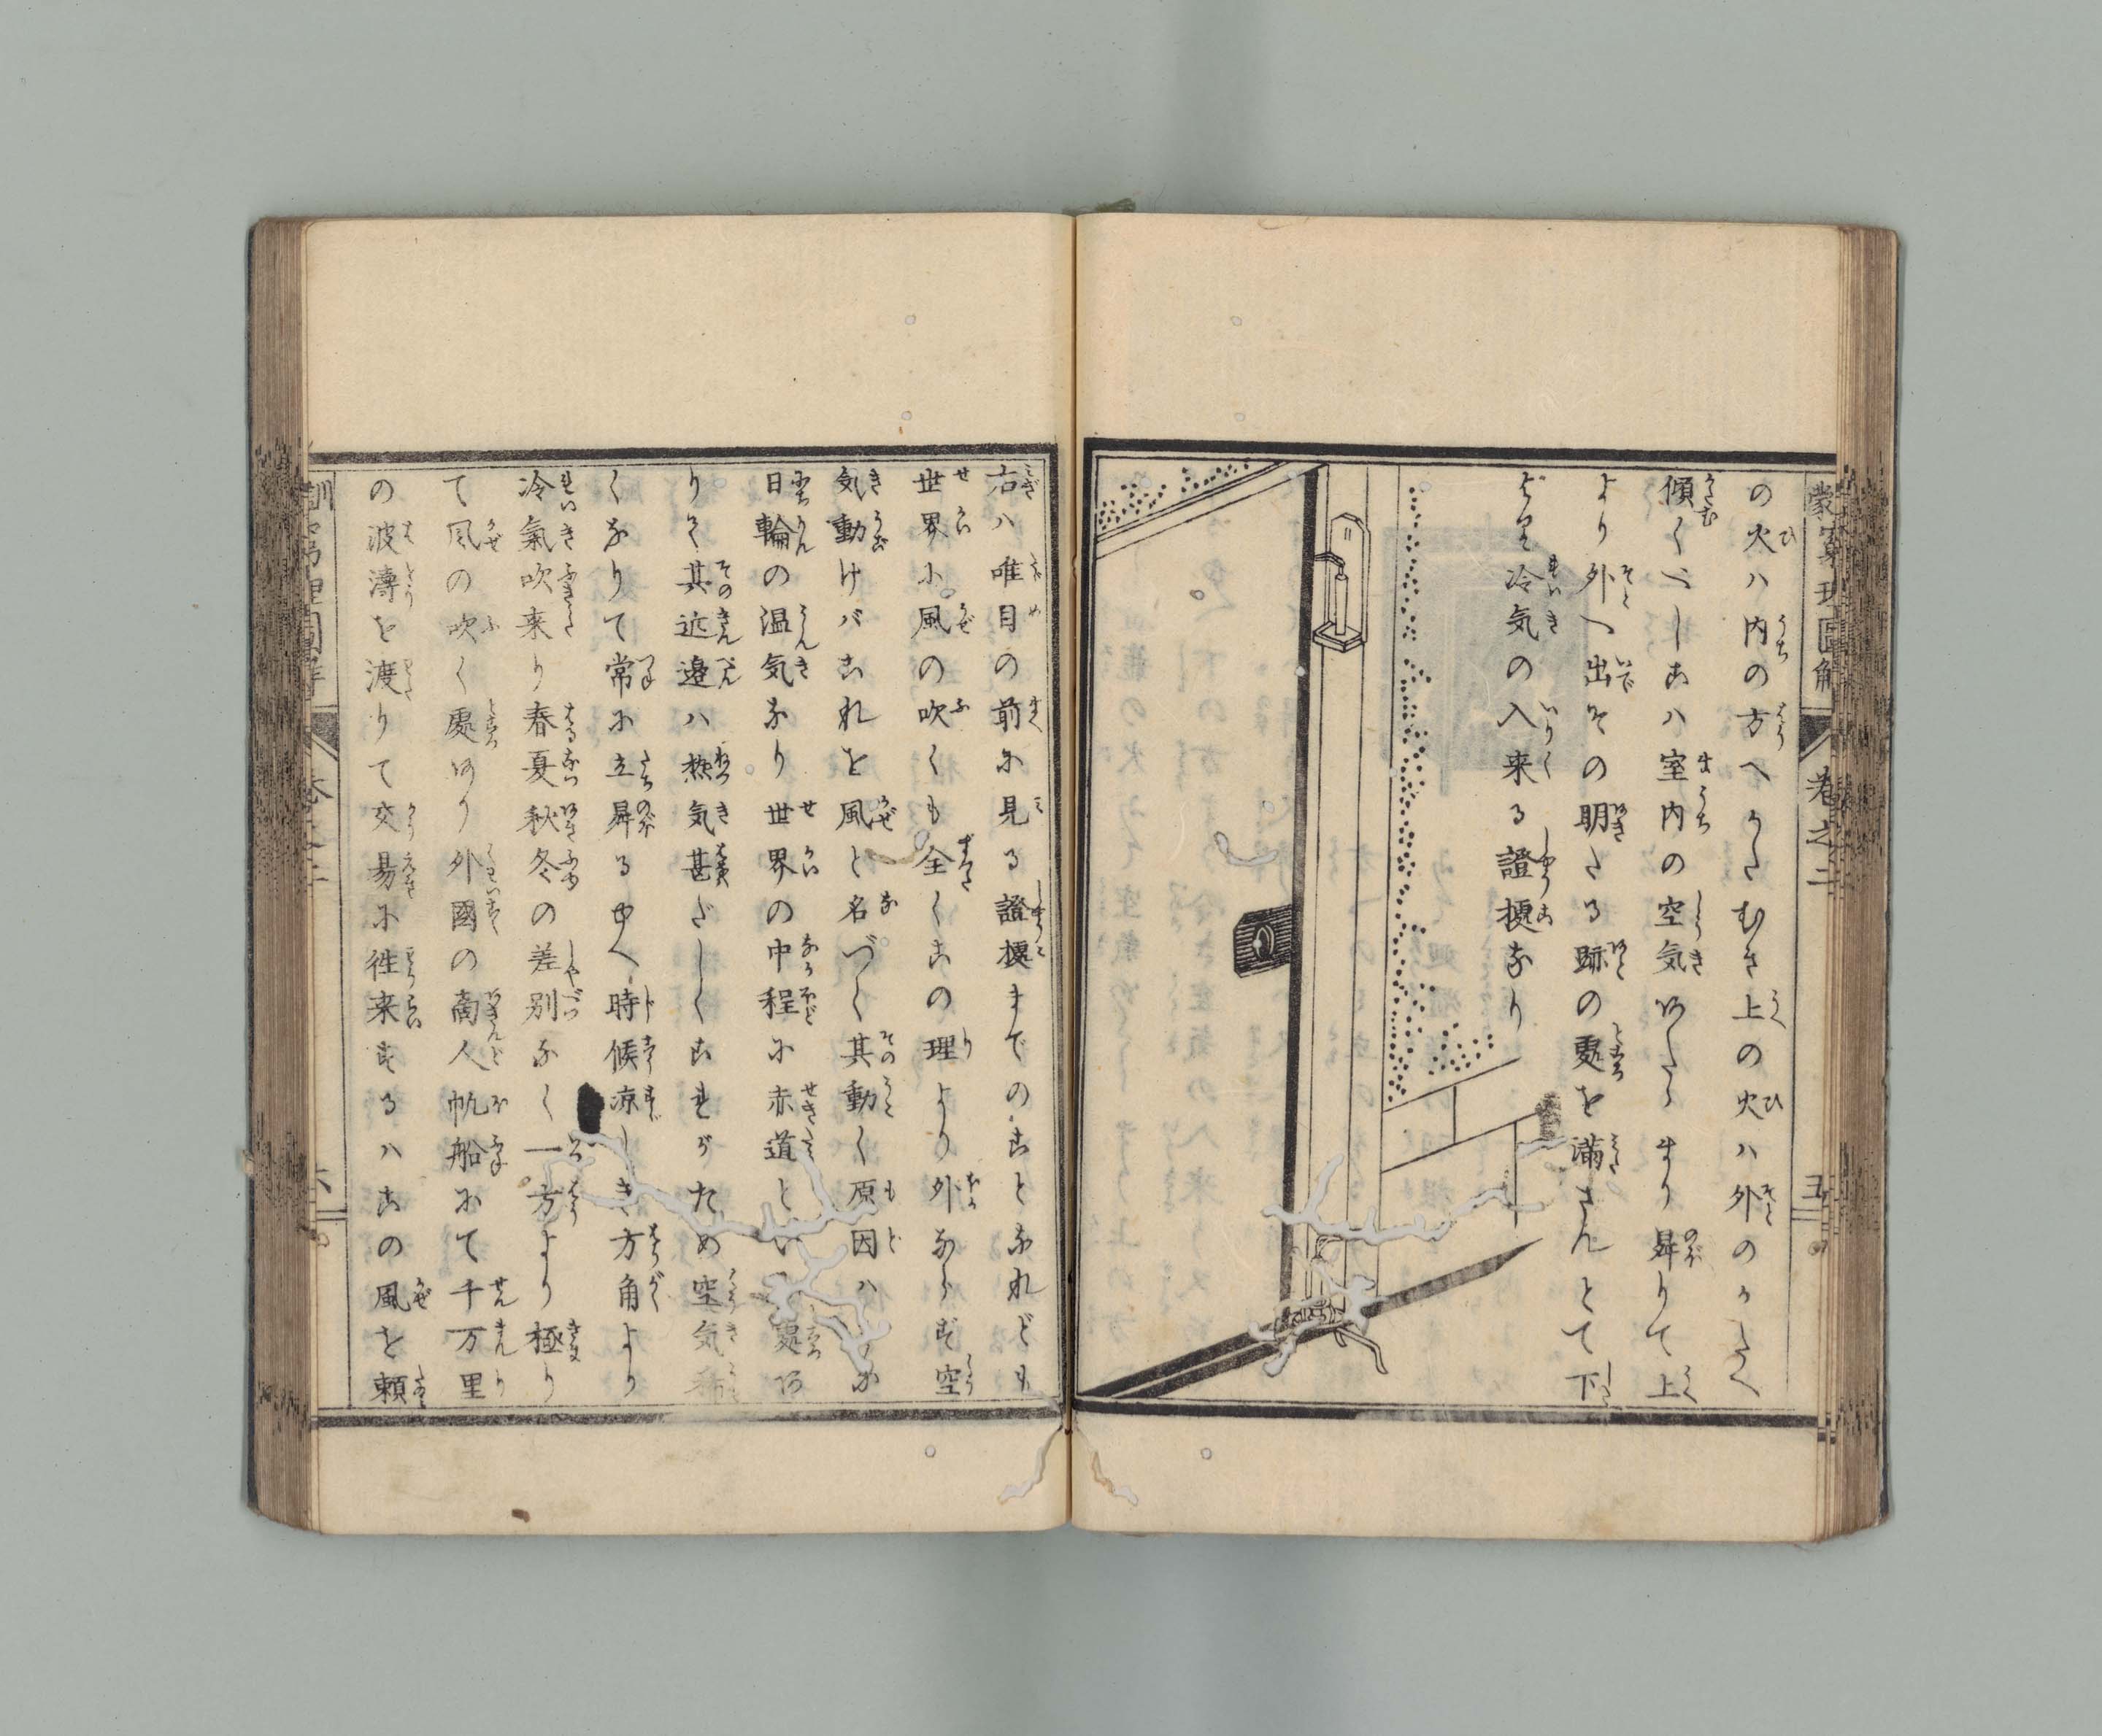 の火ハ内の方へかたむき上の火ハ外のかたへ
傾くべしこハ室内の空気あたゝまり昇りて上
より外へ出その明きたる跡の處を満さんとて下
より冷気の入来る證據なり
蒙窮理圖解
卷之二
五
右ハ唯目の前に見る證據までのことなれども
世界に風の吹くも全くこの理より外ならず空
気動けバこれを風と名づく其動く原因ハ
日輪の温気なり世界の中程に赤道といふ處あ
りて其近邊ハ熱気甚だしくこれがため空気稀
くなりて常に立昇るゆへ時候涼しき方角より
冷氣吹来り春夏秋冬の差別なく一方より極り
て風の吹く處あり外國の商人帆船にて千万里
の波濤を渡りて交易に徃来するハこの風を頼
訓窮理圖解
卷之二
六